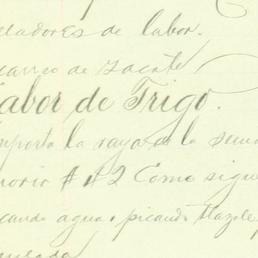 eladores de labor.
carreo de zacate
Labor de Trigo.
mporta la raya de la sema
morio # 42 Como sigue
cando agua, picando tlazole